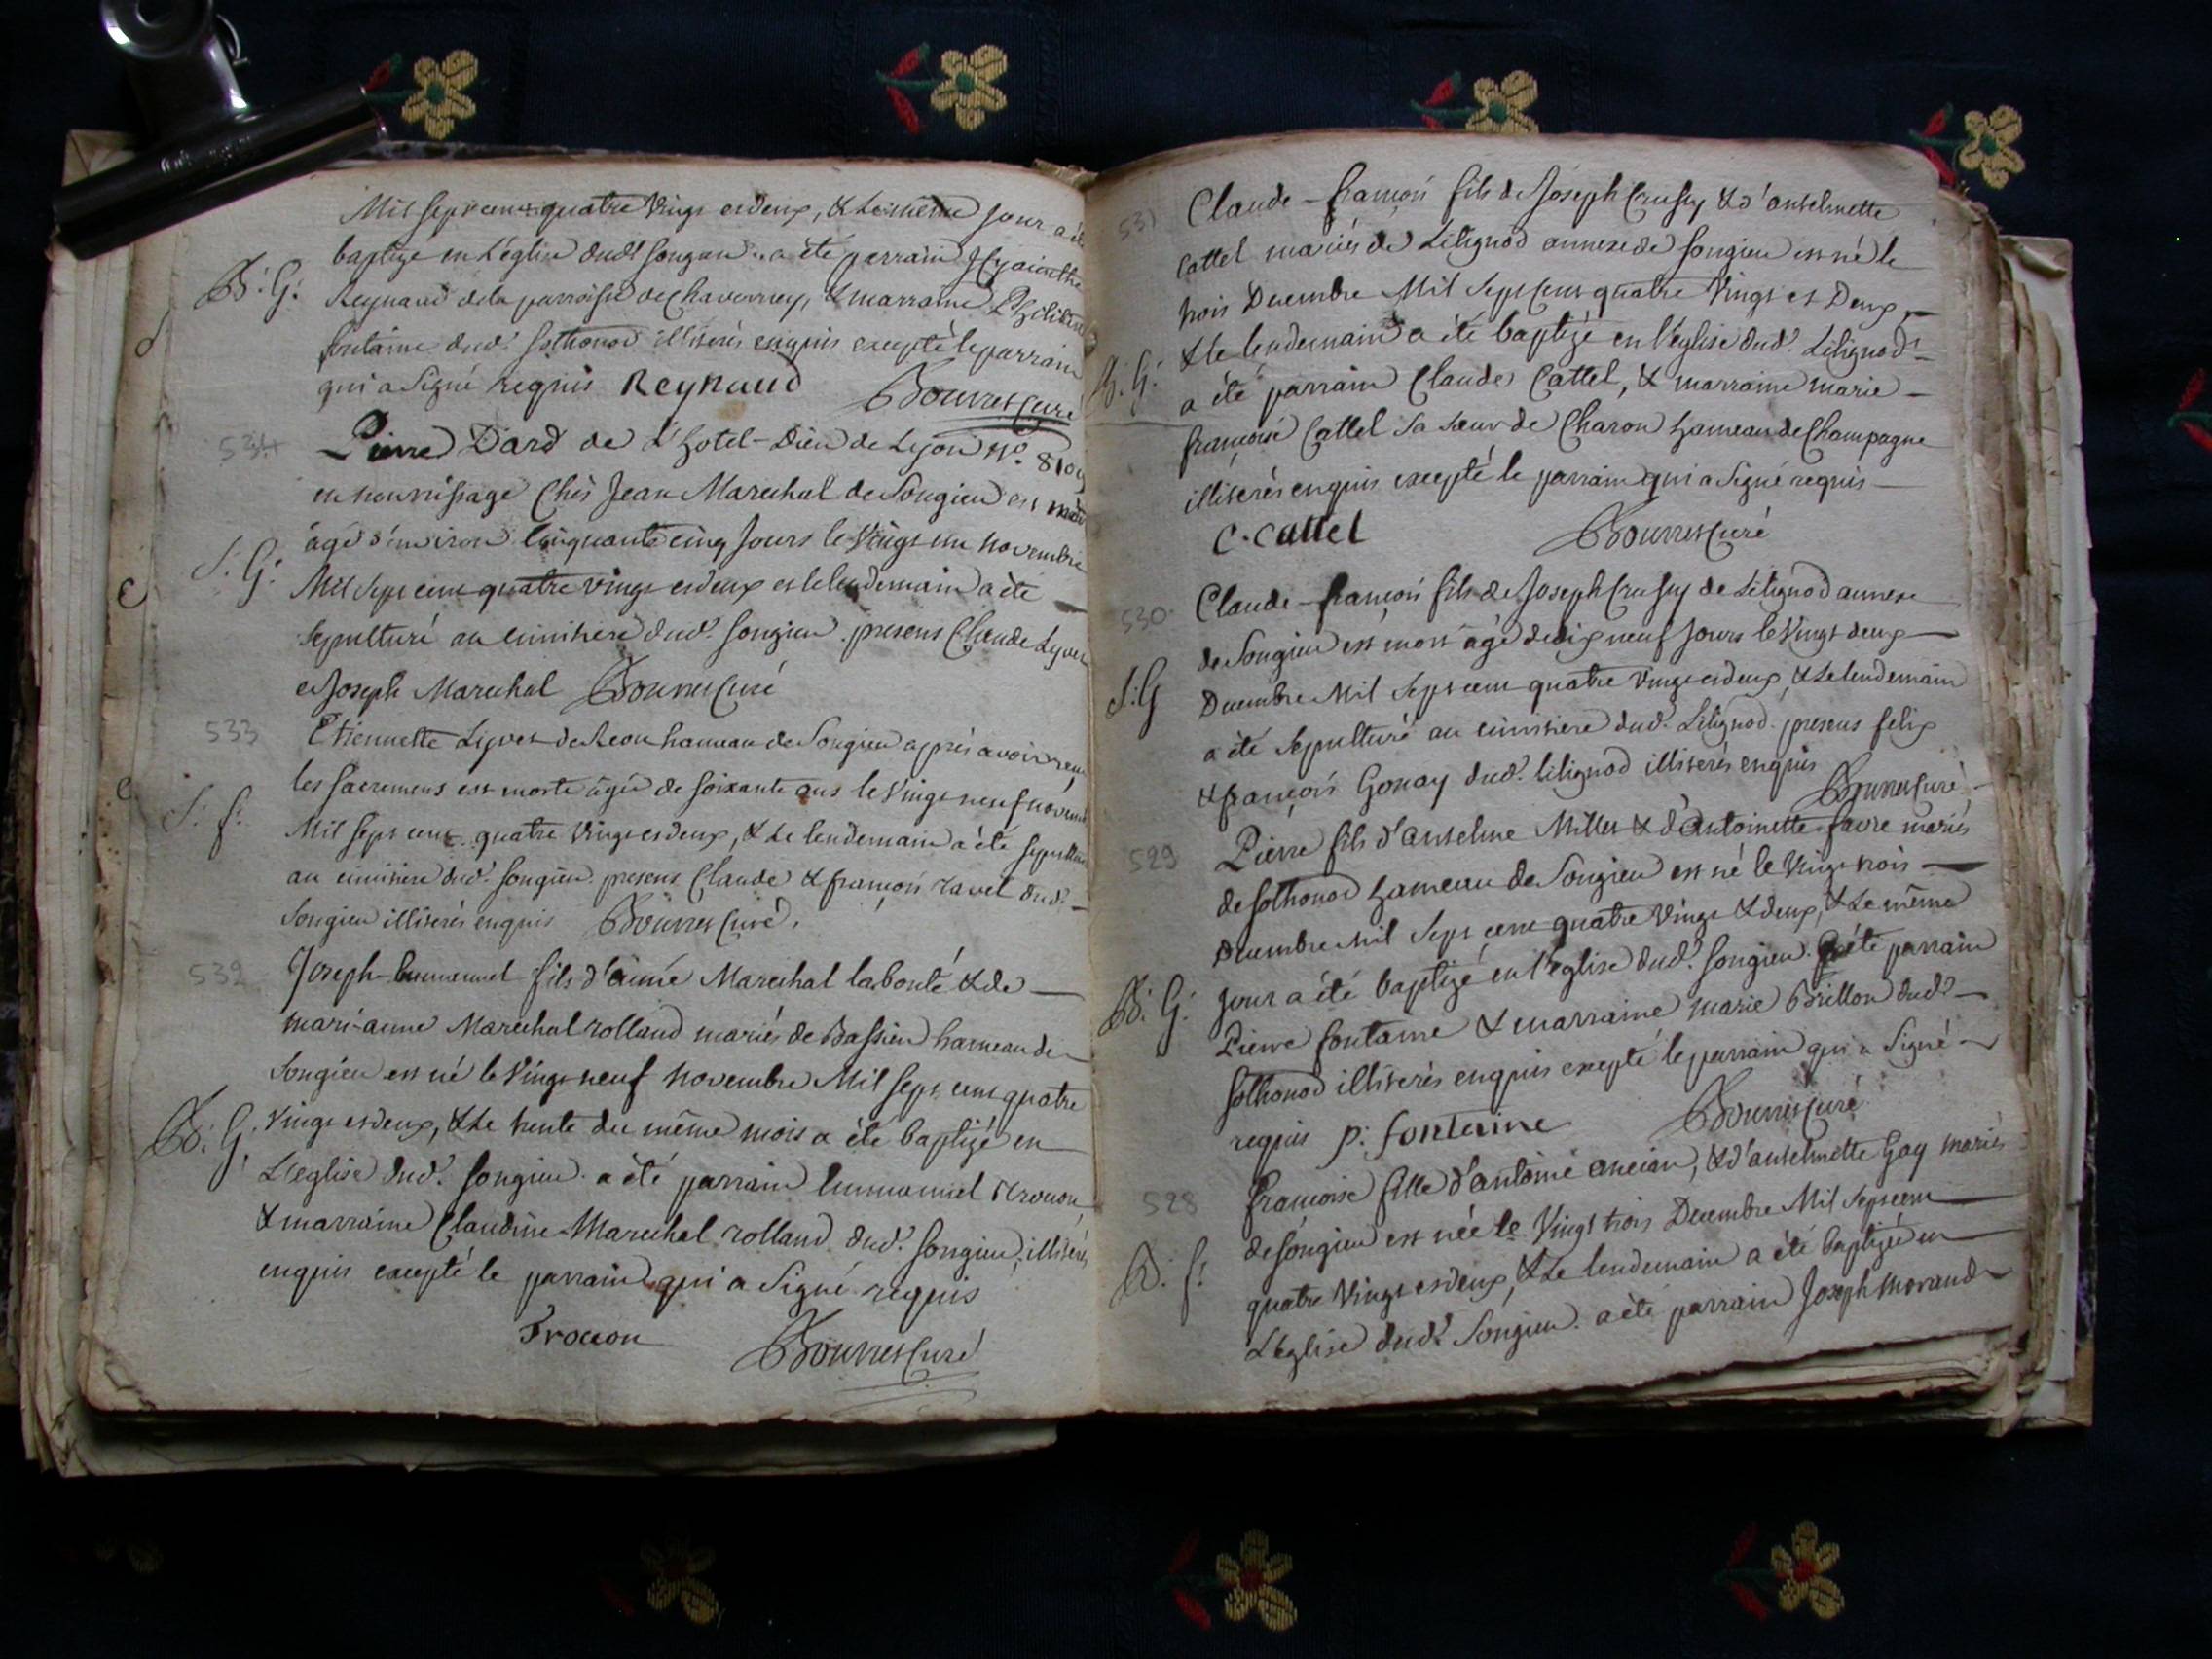 Mil sept cent quatre Vingt et deux, & le même jour a été
baptizé en L'église dudt Songieu. a été parrain Hyacinthe
B. G.
Reynaud de la parroisse de Chavornay, & marraine
fontaine dud. Sothonod illiterés enquis excepté le parrain
qui a Signé requis Reynaud Bourret Curé
534
Pierre Dard de L'Hotel-Dieu de Lyon No. 810
en nourrissage Chés Jean Marechal de Songieu est mort
âgé d'environ Cinquante cinq Jours le Vingt un novembre
S. G.
Mil Sept cent quatre vingt et deux et le lendemain a été
sepulturé au cimitiere dud. Songieu. presens Claude Lyvet
& Joseph Marechal Bourret Curé
533
Etiennette Lyvet de hameau de Songieu après avoir reçu
les sacremens est morte âgée de soixante ans le Vingt neuf novembre
S. f.
Mil Sept cent quatre Vingt et deux, & le lendemain a été sepulturée
au cimitiere dud. Songieu. presens Claude & françois ravet dud.
Songieu illiterés enquis Bourret Curé.
532
Joseph-Emmanuel fils d'aimé Marechal labonté & de
mari-anne Marechal rolland mariés de Bassieu hameau de
Songieu est né le Vingt neuf novembre Mil Sept cent quatre
B. G.
Vingt et deux, & le trente du même mois a été baptizé en
L'eglise dud. Songieu. a été parrain Emmanuel Trouon
& marraine Claudine Marechal rolland dud. Songieu, illiterés
enquis excepté le parrain qui a Signé requis
Trouon Bourret Curé
531
Claude-françois fils de Joseph Crussy & d'antelmette
Cattel mariés de Lilignod annexe de Songieu est né le
trois Decembre Mil Sept Cent quatre Vingt et Deux,
& le lendemain a été baptizé en l'église dud. Lilignod
B. G.
a été parrain Claude Cattel, & marraine marie
françoise Cattel Sa Sœur de Charon hameau de Champagne
illiterés enquis excepté le parrain qui a Signé requis
C. Cattel Bourret Curé
530
Claude-françois fils de Joseph Crussy de Lilignod annexe
de Songieu est mort âgé de dix neuf Jours le Vingt deux
S. G
Decembre Mil Sept cent quatre Vingt et deux, & le lendemain
a été Sepulturé au cimitiere dud. Lilignod. presens felix
& françois Gonay dud. lilignod illiterés enquis
Bourret Curé
529
Pierre fils d'antelme Millet & d'antoinette favre mariés
de Sothonod hameau de Songieu est né le Vingt trois
Decembre Mil Sept cent quatre Vingt & deux, & le même
B. G.
Jour a été baptizé en l'eglise dud. Songieu. a été parrain
Pierre fontaine & marraine marie Brillon dud.
Sothonod illiterés enquis excepté le parrain qui a Signé
requis p. fontaine Bourret Curé
528
françoise fille d'antoine ancian, & d'antelmette Gay mariés
de Songieu est née le Vingt trois Decembre Mil Sept cent
B. f.
quatre Vingt et deux, & le lendemain a été baptizée en
L'église dud. Songieu. a été parrain Joseph Morand